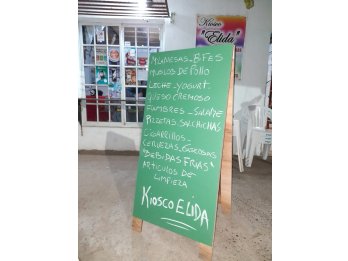 Kiosco
"Elida"
MILANESAS - BIFES
MUSLOS DE POLLO
LECHE - YOGURT
QUESO CREMOSO
FIAMBRES -
PIZZETAS SALCHICHAS
CIGARRILLOS -
CERVEZAS - GASEOSAS
"BEBIDAS FRIAS"
ARTICULOS DE
LIMPIEZA
KIOSCO ELIDA